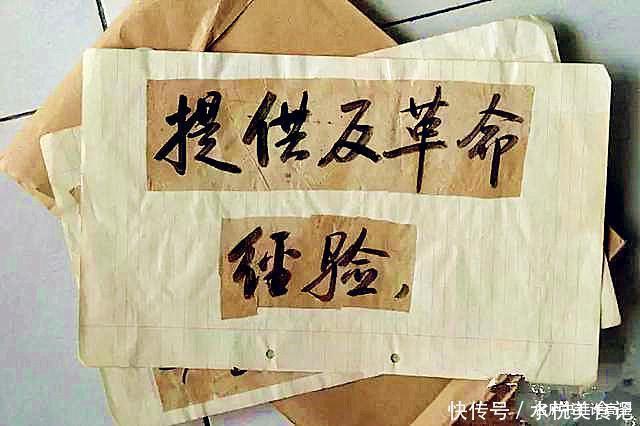 提供反革命
经验、
快传号/水悦美食记